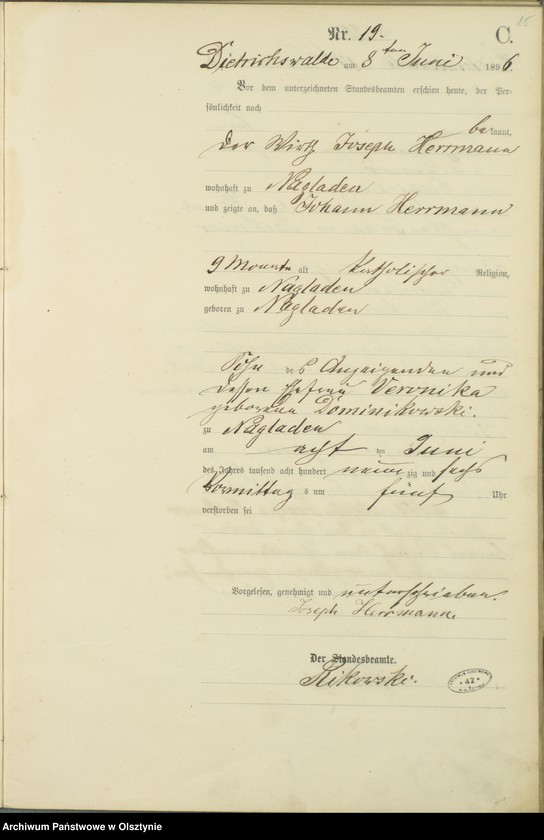 15
Nr. 19. C.
Dietrichswalde am 8ten Juni 1896
Vor dem unterzeichneten Standesbeamten erschien heute, der Per-
sönlichkeit nach
bekannt,
der Wirth Joseph Herrmann
wohnhaft zu Nagladen
und zeigte an, daß Johann Herrmann
9 Monate alt katholischer Religion,
wohnhaft zu Nagladen
geboren zu Nagladen
Sohn des Anzeigenden und
dessen Ehefrau Veronika
geborene Dominikowski.
zu Nagladen
am acht ten Juni
des Jahres tausend acht hundert neunzig und sechs
Vormittags um fünf Uhr
verstorben sei
Vorgelesen, genehmigt und unterschrieben.
Joseph Herrmann.
Der Standesbeamte.
Rikowski.
42
Archiwum Państwowe w Olsztynie